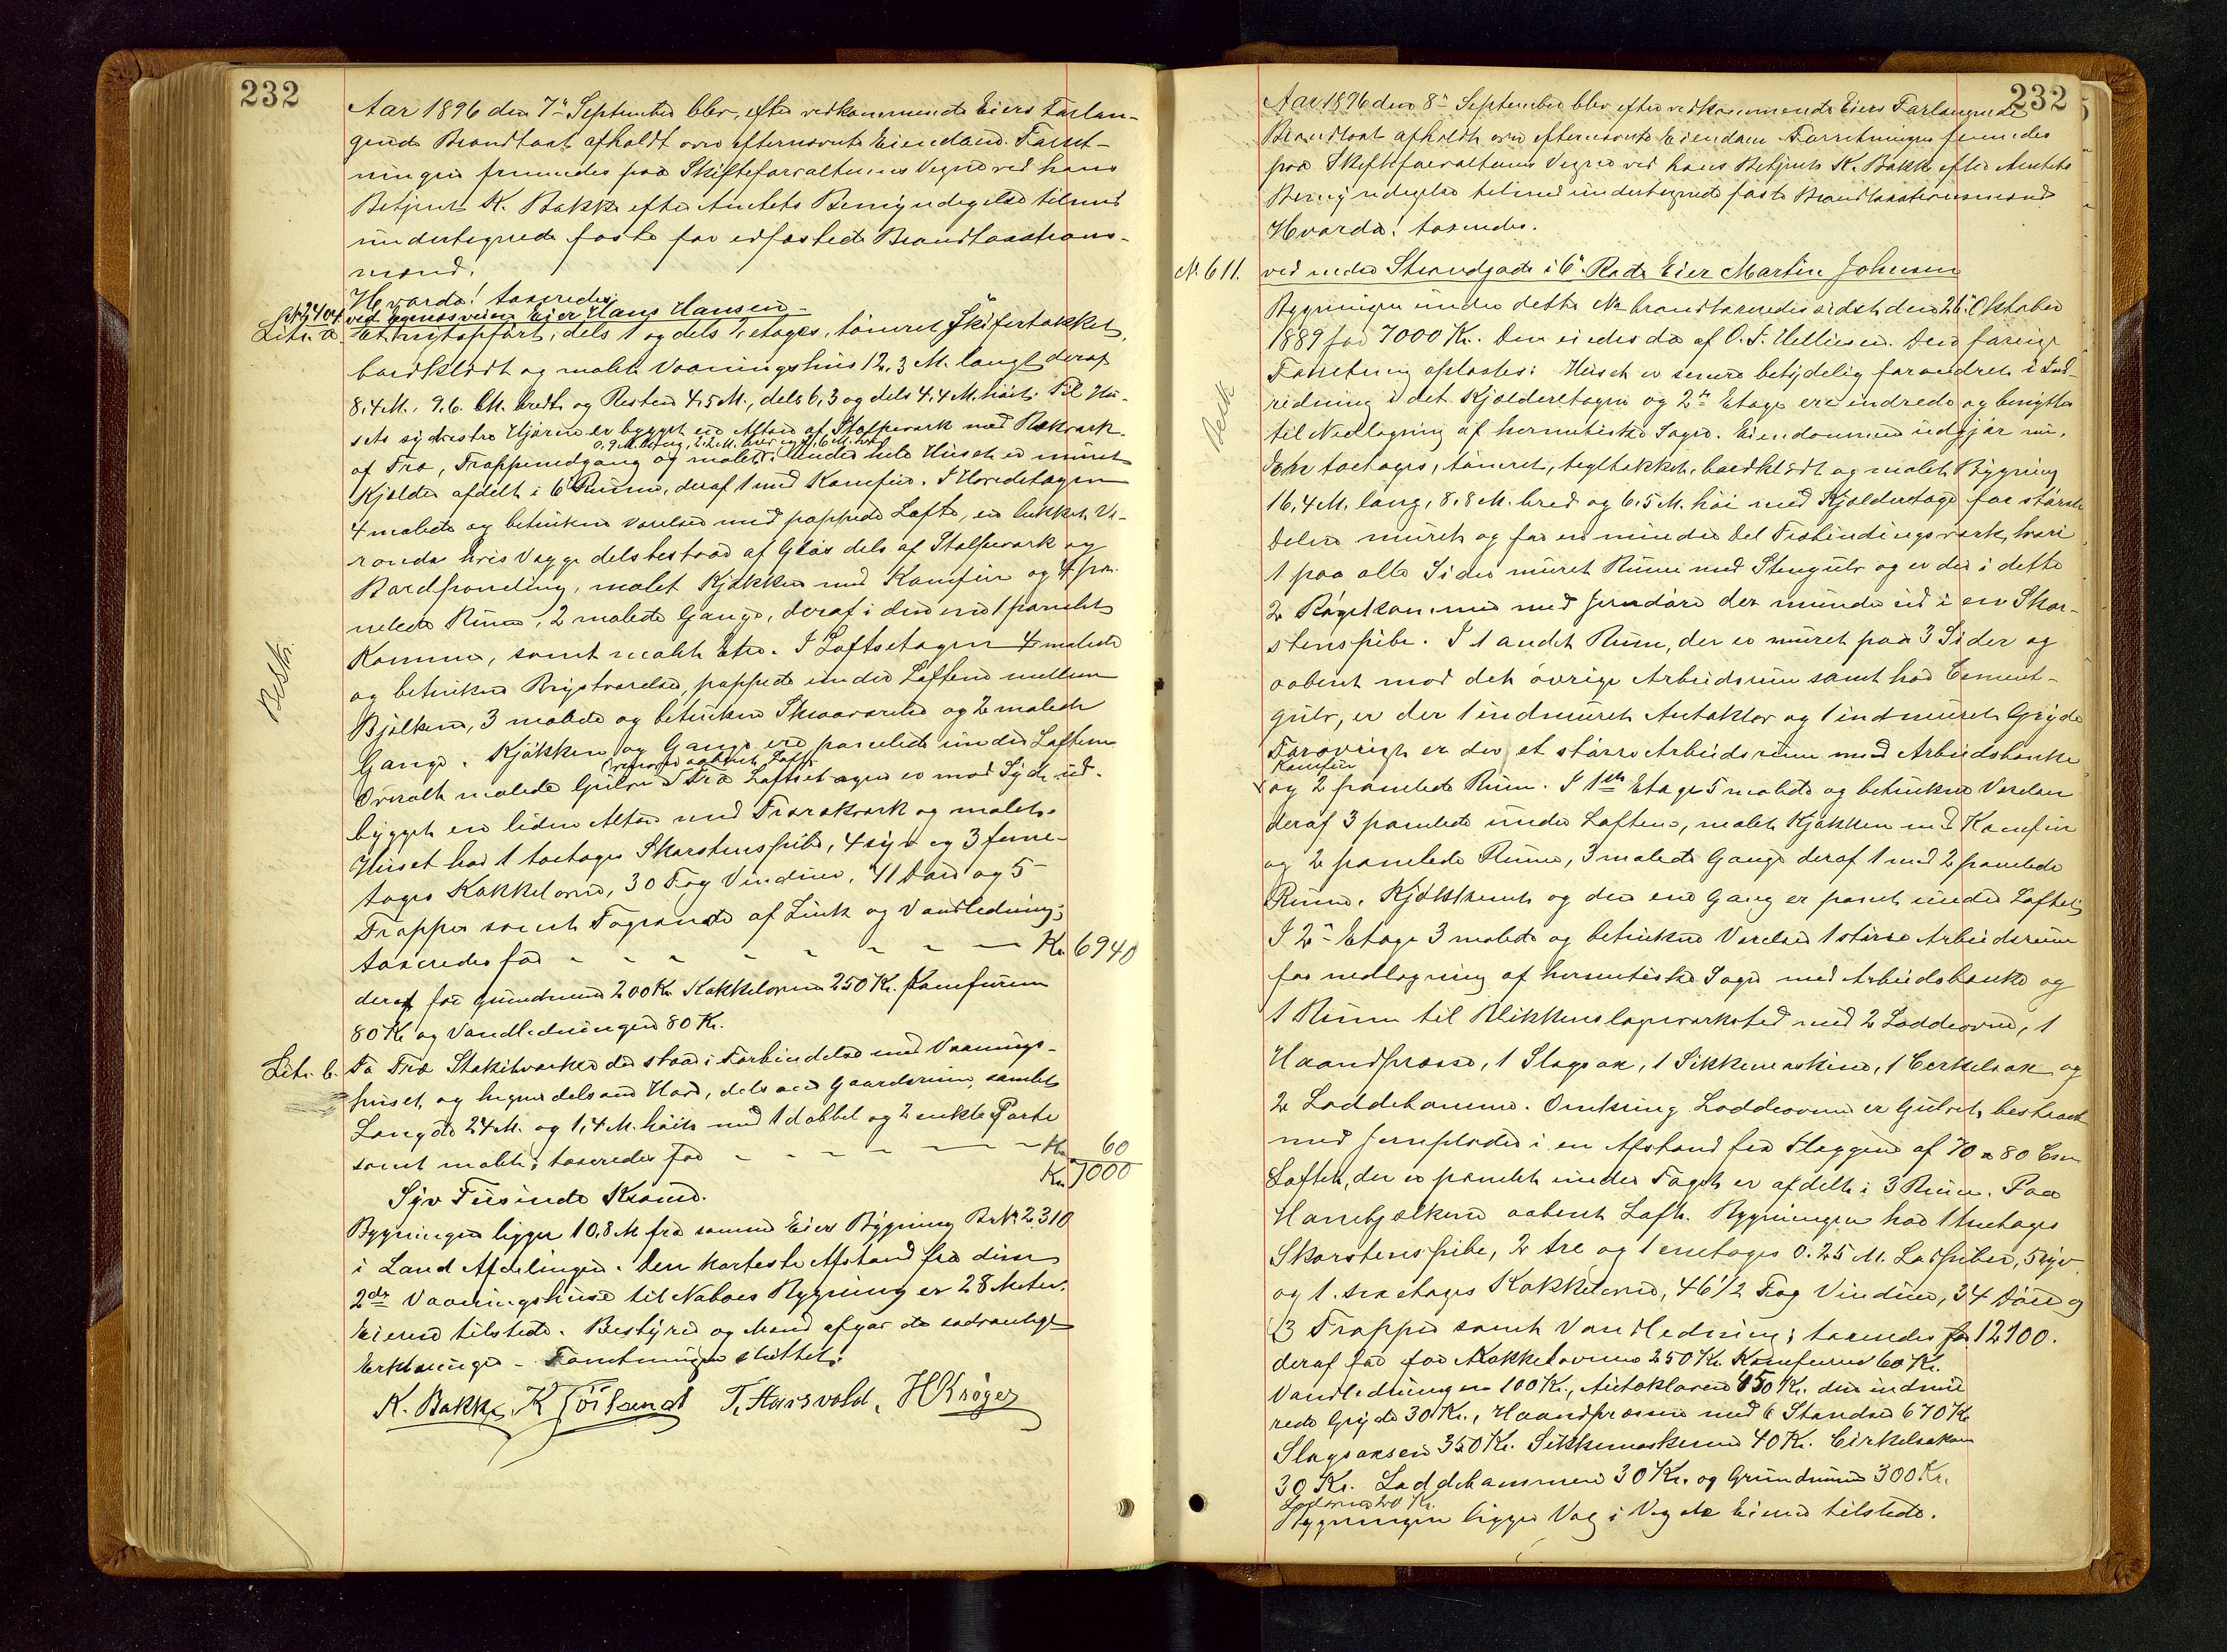 232
Aar 1896 den 7de September blev, efter vedkommende Eiers Forlan-
gende Brandtaxt afholdt over efternævnte Eiendom. Forret-
ningen fremmedes paa Skifteforvalterens Vegne ved hans
Betjent K. Bakke efter Amtets Bemyndigelse tilmed
undertegnede faste for edfæstede Brandtaxtions-
mænd.
Hvorda! taxeredes
No 2404 ved Egenæsveien Eier Hans Hansen
Litr. a. Et nyt opført, dels 1 og dels etages, tømret, Skifertækket,
bordklædt og malet Vaaningshus 12,3 M. langt deraf
8,4 M., 9,6 M. bredt og Resten 4,5 M., dels 6,3 og dels 4,4 M. høit. Til Hu-
sets sydvestre Hjørne er bygget en Altan af Stolpeværk med Rækværk
0,9 M. lang, 2,2 M. bred og
af Træ, Trappenedgang og malet. Under hele Huset er muret
Kjælder afdelt i 6 Rum, deraf 1 med Komfur. I Hovedetagen
4 malede og betrukne Værelser med pappede Lofte, en lukket Ve-
randa hvis Vægge dels bestaar af Glas dels af Stolpeværk og
Bordpaneling, malet Kjøkken med Komfur og 4 pa-
nelede Rum, 2 malede Gange, deraf i den ene 1 panelet
Kammer, samt malet Etre. I Loftsetagen 4 malede
og betrukne Kvistværelser, pappede under Loftene mellem
Bjelkerne, 3 malede og betrukne Skraaværelser og 2 malede
Gange. Kjøkken og Gange ere panelede under Loftene
aabent Loft
Overalt malede Gulve. Fra Loftsetagen er mod Syd ud-
bygget en liden Altan med Trærækværk og malet.
Huset har 1 toetages Skorstenspibe, 4 syv og 3 fem-
tages Kakkelovne, 30 Fag Vinduer, 41 Døre og 5
Trapper samt Tagrende af Zink og Vandledning;
taxeredes for - - - - - - - Kr. 6940
deraf for Grundmur 200 Kr. Kakkelovne 250 Kr. Komfurerne
80 Kr. og Vandledningen 80 Kr.
Litr. b. To Træ Stakitværker der staar i Forbindelse med Vaanings-
huset, og hegner dels om Have, dels om Gaardsrum, samlet
Længde 24 M. og 1,4 M. høit med 1 dobbel og 2 enkle Porte
samt malet; taxeredes for - - - - - - Kr. 60
Kr. 7000
Syv Tusinde Kroner.
Bygningen ligger 10,8 M fra samme Eiers Bygning Br No 2310
i Land Afdelingen. Den korteste Afstand fra disse
2de Vaaningshuse til Naboes Bygning er 28 Meter.
Eieren tilstede. Bestyrer og Mænd afgav de sædvanlige
Erklæringer. Forretningen sluttet.
K. Bakke, K T. Aarsvold, H Krøger
Beskr.
232
Aar 1896 den 8de September blev efter vedkommende Eiers Forlangende
Brandtaxt afholdt over efternævnte Eiendom. Forretningen fremmedes
paa Skifteforvalterens Vegne ved hans Betjent K. Bakke efter Amtets
Bemyndigelse tilmed undertegnede faste Brandtaxationsmænd
Hvorda! taxeredes.
No. 611. ved nedre Strandgade i 6te Rode Eier Martin Johnsen
Bygningen under dette No brandtaxeredes sidst den 26. Oktober
1889 for 7000 Kr. Den eiedes da af O. T. Helliesen. Den forrige
Forretning oplæstes: Huset er senere betydelig forandret i Ind-
redning i det Kjælderetagen og 2den Etage ere indrede og benyttes
til Nedlægning af hermetiske Sager. Eiendommen udgjør nu,
Et toetages, tømret, tegltækket, bordklædt og malet Bygning
16,4 M. lang, 8,8 M. bred og 6,5 M. høi med Kjælderetage for største
Delen muret og for en mindre Del Træbindingsværk, hvori
1 paa alle Sider muret Rum med Stengulv og er der i dette
2 med Jerndøre der munde ud i en Skor-
stenspibe. I 1 andet Rum, der er muret paa 3 Sider og
aabent mod det øvrige Arbeidsrum samt har Cement-
gulv, er der 1 indmuret Autoklav og 1 indmuret Gryde
Forøvrigt er der et større Arbeidsrum med Arbeidsbænke
Komfur
og 2 panelede Rum. I 1ste Etage 5 malede og betrukne Værelser
deraf 3 panelede under Loftene, malet Kjøkken med Komfur
og 2 panelede Rum, 3 malede Gange deraf 1 med 2 panelede
Rum. Kjøkkenet og den ene Gang er panelet under Loftet;
I 2den Etage 3 malede og betrukne Værelser 1 større Arbeidsrum
for nedlægning af hermetiske Sager med Arbeidsbænke og
1 Rum til Blikkenslagerværksted med 2 Loddeovne, 1
Haandpresse, 1 Slagsax, 1 Sikkemaskine, 1 Cerkelsax og
2 Loddehammer. Omkring Loddeovnene er Gulvet beslaaet
med Jernplader i en Afstand fra Væggene af 70 a 80 Ctm
Loftet, der er panelet under Taget er afdelt i 3 Rum. Paa
Hanebjælkerne aabent Loft. Bygningen har 1 treetages
Skorstenspibe, 2 tre og 1 enetages 0.25 M. Ladpiber, 5 syv
og 1. sex etages Kakkelovne, 46 1/2 Fag Vinduer, 34 Døre og
3 Trapper samt Vandledning; taxeredes for 12100.
deraf for for Kakkelovnene 250 Kr. Komfurene 60 Kr.
Vandledningen 100 Kr., Autoklaven 450 Kr. den indmu-
rede Gryde 30 Kr., Haandpressen med 6 Standser 670 Kr.
Slagsaxsen 350 Kr. Sikkemaskinen 40 Kr. Cirkelsaksen
30 Kr. Loddehammerne 30 Kr. og Grundmur 300 Kr.
Loddeovne 20 Kr.
Bygningen ligger Væg i Væg Eieren tilstede.
Besk